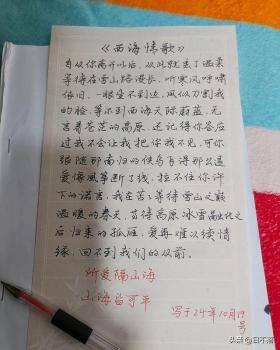 《西海情歌》
自从你离开以后，从此就丢了温柔
等待在雪山路漫长，听寒风呼啸
依旧，一眼望不到边，风似刀割我
的脸，等不到西海天际蔚蓝，无
言着苍茫的高原，还记得你答应
过我不会让我把你找不见，可你
跟随那南归的候鸟飞得那么远
爱像风筝断了线，拉不住你许
下的诺言，我在苦苦等待雪山之巅
温暖的春天，等待高原冰雪融化之
后归来的孤雁，爱再难以续情
缘，回不到我们的从前。
所爱隔山海
山海皆可平
写于24年10月19
号
头条 @日不落